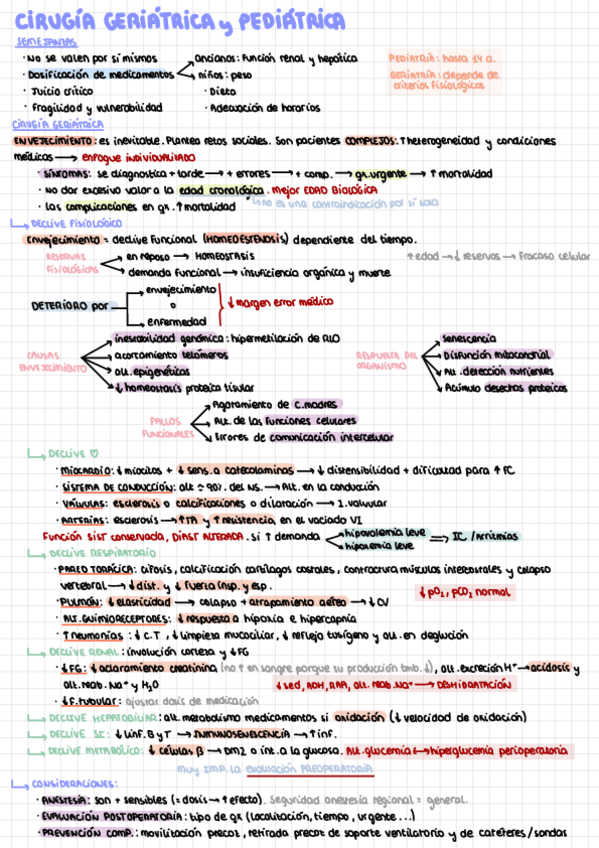 CIRUGÍA GERIÁTRICA y PEDIÁTRICA
SEMEJANZAS
· No se valen por sí mismos
· Dosificación de medicamentos
ancianos: función renal y hepática
niños: peso
· Juicio crítico
· Dieta
· Fragilidad y vulnerabilidad
· Adecuación de horarios
PEDIATRÍA: hasta 14 a.
GERIATRÍA: depende de
criterios fisiológicos
CIRUGÍA GERIÁTRICA
ENVEJECIMIENTO: es inevitable. Plantea retos sociales. Son pacientes COMPLEJOS: ↑ heterogeneidad y condiciones
médicas → enfoque INDIVIDUALIZADO
· SÍNTOMAS: se diagnostica + tarde → + errores → + comp. → qx. urgente → ↑ mortalidad
· No dar excesivo valor a la edad cronológica. Mejor EDAD BIOLÓGICA
↳ no es una contraindicación por sí sola
· Las complicaciones en qx. ↑ mortalidad
↳ DECLIVE FISIOLÓGICO
Envejecimiento = declive funcional (HOMEOESTENOSIS) dependiente del tiempo.
RESERVAS
FISIOLÓGICAS
en reposo → HOMEOSTASIS
demanda funcional → insuficiencia orgánica y muerte
↑ edad → ↓ reservas → Fracaso celular
DETERIORO por
envejecimiento
o
enfermedad
↓ margen error médico
CAUSAS
ENVEJECIMIENTO
inestabilidad genómica: hipermetilación de
acortamiento telómeros
alt. epigenéticas
↓ homeostasis proteica tisular
RESPUESTA DEL
ORGANISMO
Senescencia
Disfunción mitocondrial
Alt. detección nutrientes
Acúmulo desechos proteicos
FALLOS
FUNCIONALES
Agotamiento de c. madres
Alt. de las funciones celulares
Errores de comunicación intercelular
↳ DECLIVE ♡
· MIOCARDIO: ↓ miocitos + ↓ sens. a catecolaminas → ↓ distensibilidad + dificultad para ↑ FC
· SISTEMA DE CONDUCCIÓN: alt ≃ 90% del NS. → Alt. en la conducción
· VÁLVULAS: esclerosis o calcificaciones o dilatación → I. valvular
· ARTERIAS: esclerosis → ↑TA y ↑ resistencia en el vaciado VI
Función SIST conservada, DIAST ALTERADA. Si ↑ demanda
hipovolemia leve
hipoxemia leve
⇒ IC / Arritmias
↳ DECLIVE RESPIRATORIO
· PARED TORÁCICA: cifosis, calcificación cartílagos costales, contractura músculos intercostales y colapso
vertebral → ↓ dist. y ↓ fuerza insp. y esp.
· PULMÓN: ↓ elasticidad → colapso + atrapamiento aéreo → ↓ CV
↓ pO₂, pCO₂ normal
· ALT. QUIMIORECEPTORES: ↓ respuesta a hipoxia e hipercapnia
· ↑ Neumonías: ↓ C.T, ↓ limpieza mucociliar, ↓ reflejo tusígeno y alt. en deglución
↳ DECLIVE RENAL: involución corteza y ↓ FG
· ↓ FG: ↓ aclaramiento creatinina (no ↑ en sangre porque su producción tmb. ↓), alt. excreción H⁺ → acidosis y
alt. reab. Na⁺ y H₂O
↓ sed, ADH, RAA, alt. reab. Na⁺ → DESHIDRATACIÓN
· ↓ F. tubular: ajustar dosis de medicación
↳ DECLIVE HEPATOBILIAR: alt. metabolismo medicamentos si oxidación (↓ velocidad de oxidación)
↳ DECLIVE SI: ↓ linf. B y T → INMUNOSENESCENCIA → ↑ inf.
↳ DECLIVE METABÓLICO: ↓ células β → DM2 o int. a la glucosa. Alt. glucemia ↔ hiperglucemia perioperatoria
MUY IMP. la EVALUACIÓN PREOPERATORIA
↳ CONSIDERACIONES:
· ANESTESIA: son + sensibles (= dosis → ↑ efecto). Seguridad anestesia regional = general.
· EVALUACIÓN POSTOPERATORIA: tipo de qx (localización, tiempo, urgente...)
· PREVENCIÓN COMP.: movilización precoz, retirada precoz de soporte ventilatorio y de catéteres/sondas